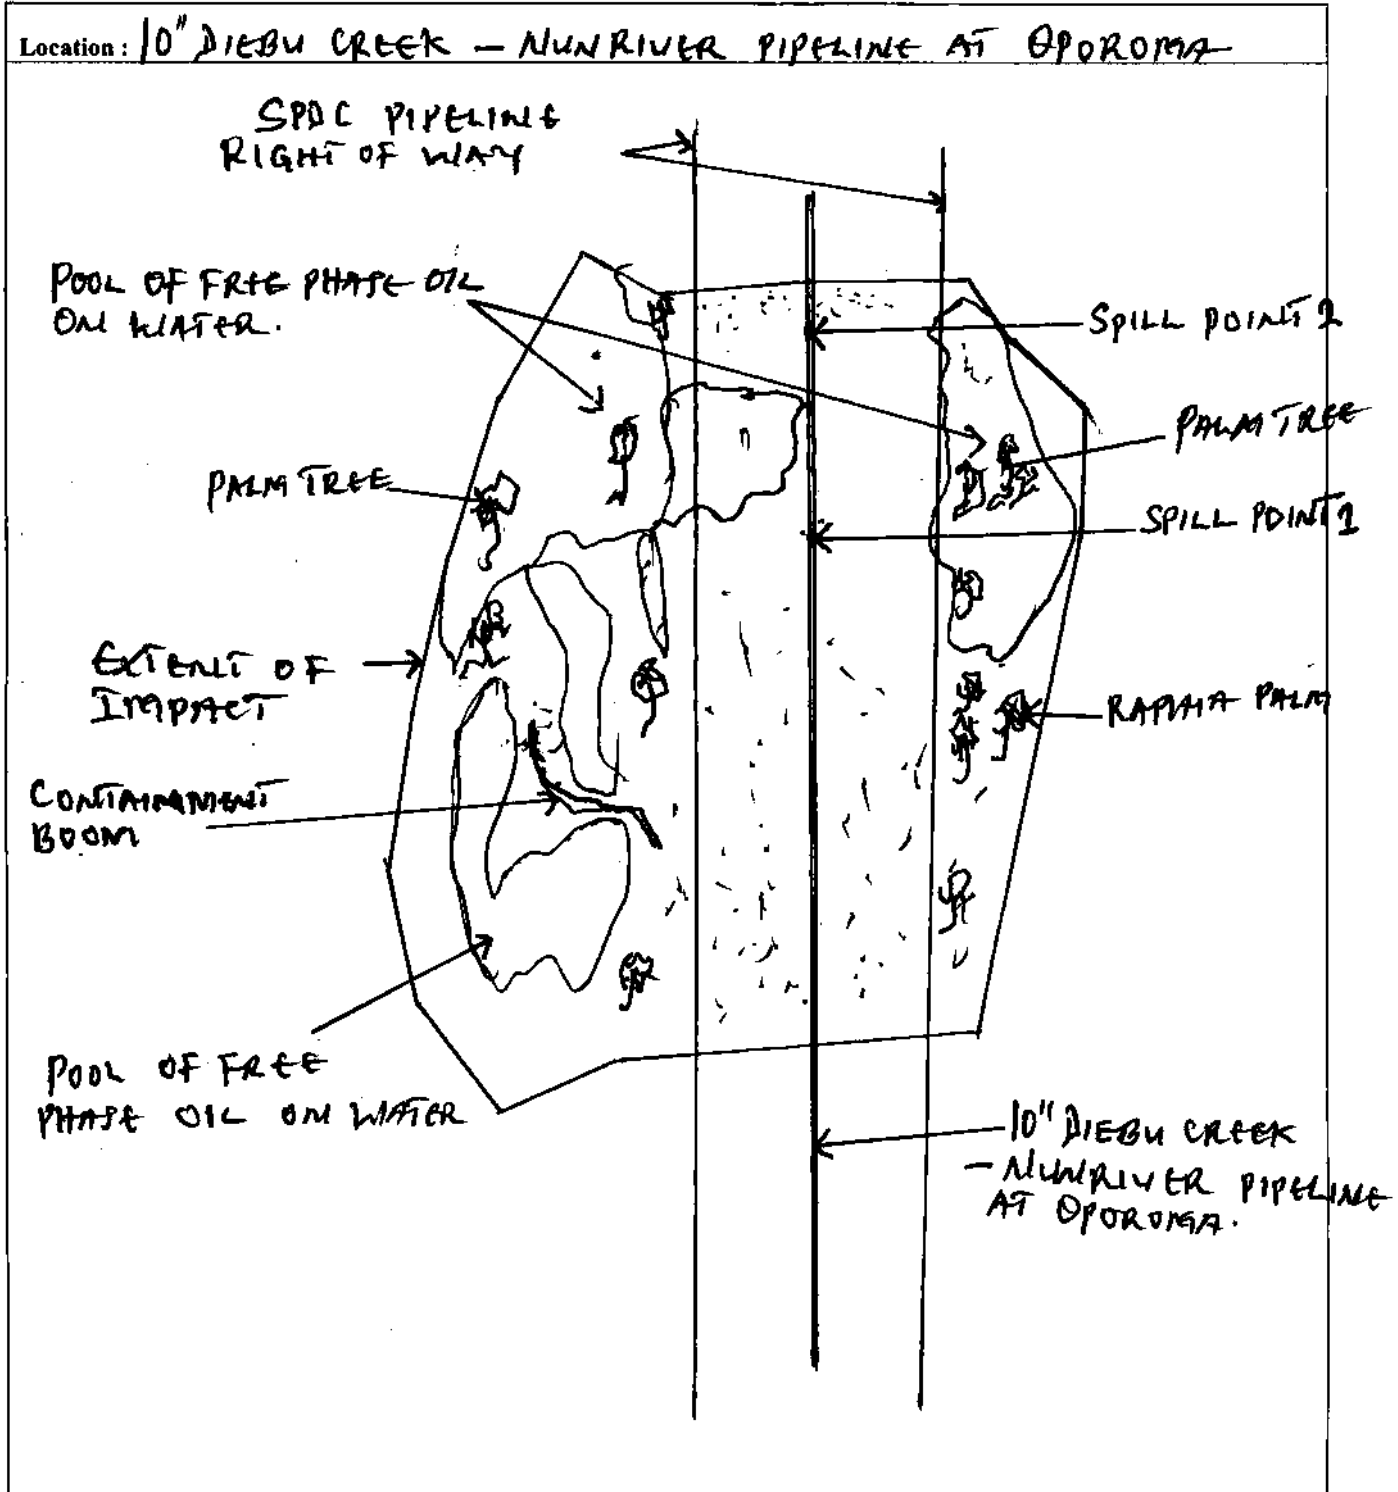 Location : 10" DIEBU CREEK – NUNRIVER PIPELINE AT OPOROMA
SPDC PIPELINE
RIGHT OF WAY
POOL OF FREE PHASE OIL
ON WATER.
SPILL POINT 2
PALM TREE
PALM TREE
SPILL POINT 1
EXTENT OF
IMPACT
RAPHIA PALM
CONTAINMENT
BOOM
POOL OF FREE
PHASE OIL ON WATER
10" DIEBU CREEK
– NUNRIVER PIPELINE
AT OPOROMA.